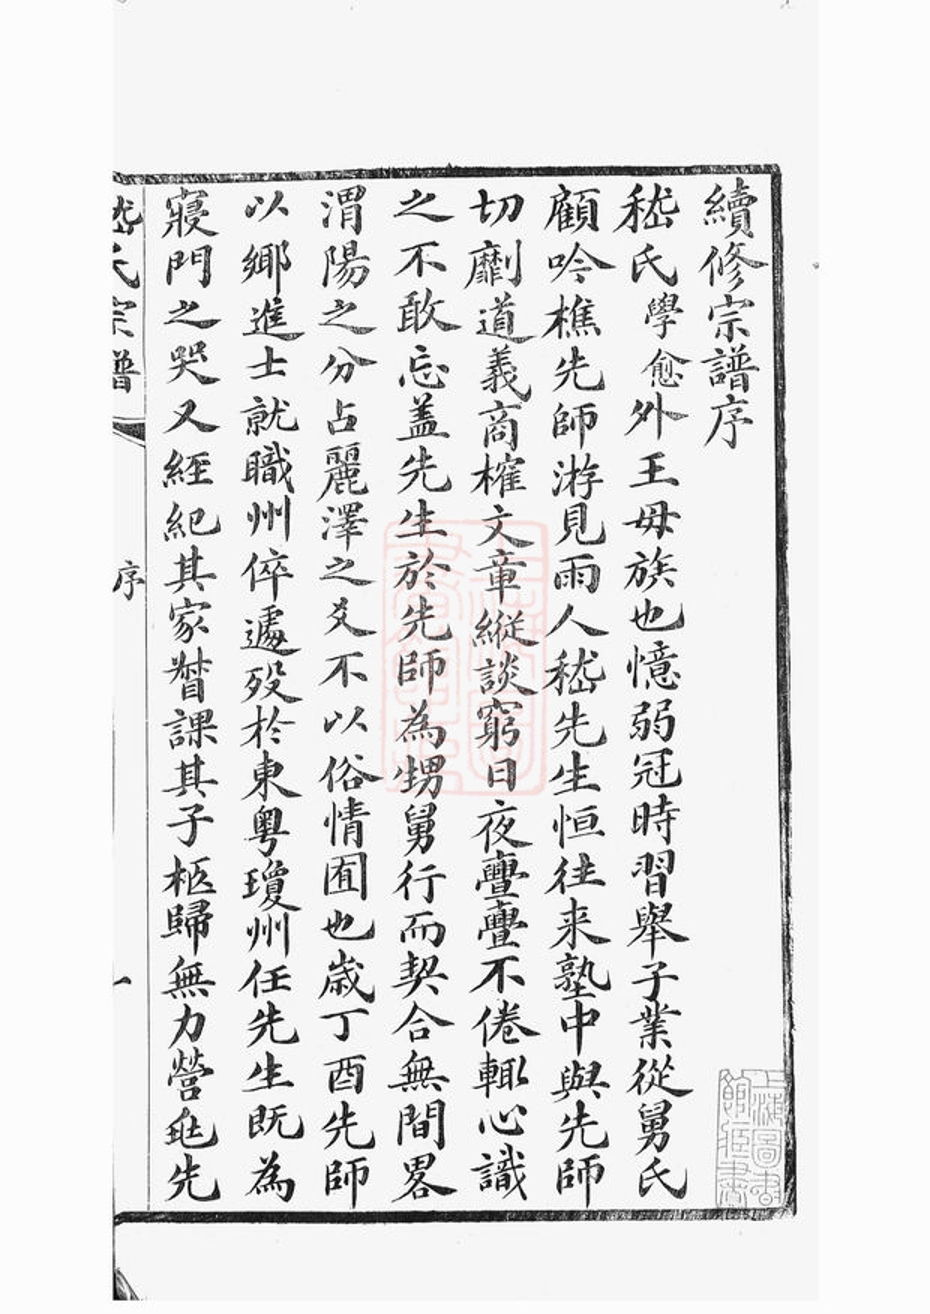 續修宗譜序
嵇氏學愈外王母族也憶弱冠時習舉子業從舅氏
顧吟樵先師游見雨人嵇先生恒往来塾中與先師
切劘道義商榷文章縱談窮日夜亹亹不倦輙心識
之不敢忘盖先生於先師為甥舅行而契合無間畧
渭陽之分占麗澤之爻不以俗情囿也歲丁酉先師
以鄉進士就職州倅遽歿於東粵瓊州任先生既為
寢門之哭又經紀其家督課其子柩歸無力營兆先
嵇氏宗譜
序
一
上海圖書館藏書